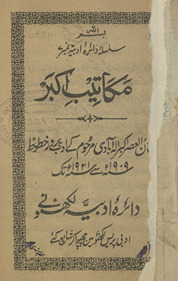 بسم اللہ
سلسلہ دائرہ ادبیہ نمبر
مکاتیب اکبر
العصر اکبر الہ آبادی مرحوم کے ادبی خطوط
۱۹۰۹ء سے ۱۹۲۱ء تک
دائرہ ادبیہ لکھنؤ نے
پریس لکھنؤ میں چھپوا کر شائع کئے